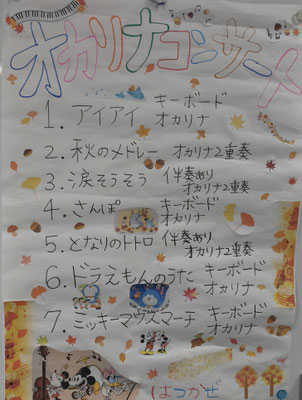 オカリナコンサート
1. アイアイ キーボード
オカリナ
2. 秋のメドレー オカリナ2重奏
3. 涙そうそう 伴奏あり
オカリナ2重奏
4. さんぽ キーボード
オカリナ
5. となりのトトロ 伴奏あり
オカリナ2重奏
6. ドラえもんのうた キーボード
オカリナ
7. ミッキーマウスマーチ キーボード
オカリナ
はつかぜ